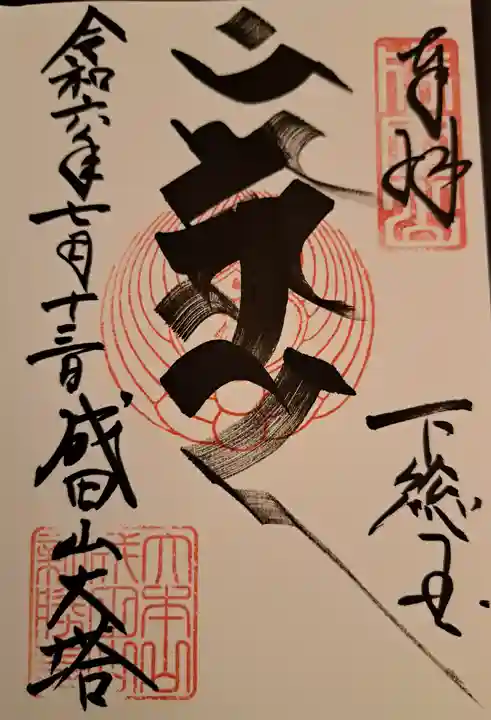 奉拝
下総国
令和六年七月十三日
成田山大塔
大本山
成田山
新勝寺